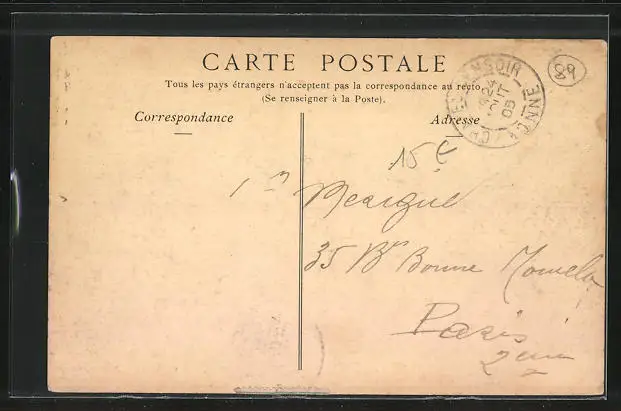 CARTE POSTALE
Tous les pays étrangers n'acceptent pas la correspondance au recto.
(Se renseigner à la Poste).
Correspondance
Adresse
89
24
OUT
08
YONNE
15 c
35 Bd Bonne Nouvelle
Paris
2eme